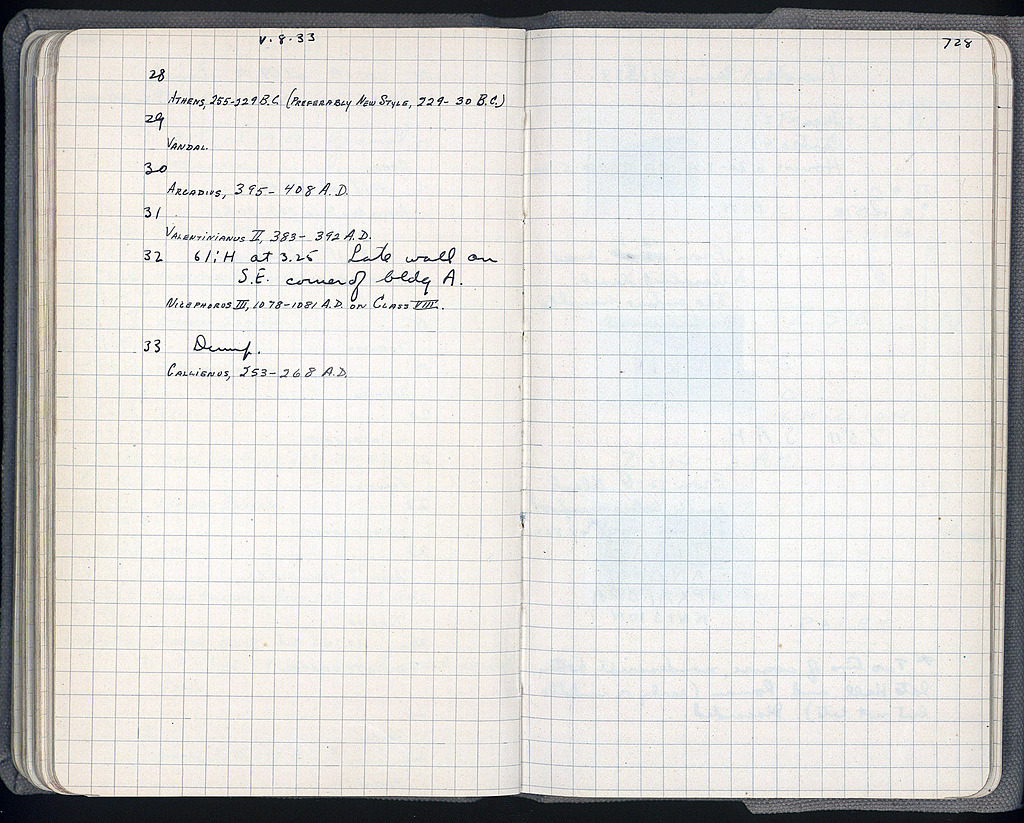 V.8.33
728
28
ATHENS, 255-229 B.C. (PREFERABLY NEW STYLE, 229-30 B.C.)
29
VANDAL.
30
ARCADIUS, 395-408 A.D.
31
VALENTINIANUS II, 383-392 A.D.
32 61/H at 3.25 Late wall on
S.E. corner of bldg A.
NICEPHORUS III, 1078-1081 A.D. ON CLASS VIII.
33 Dump.
GALLIENUS, 253-268 A.D.